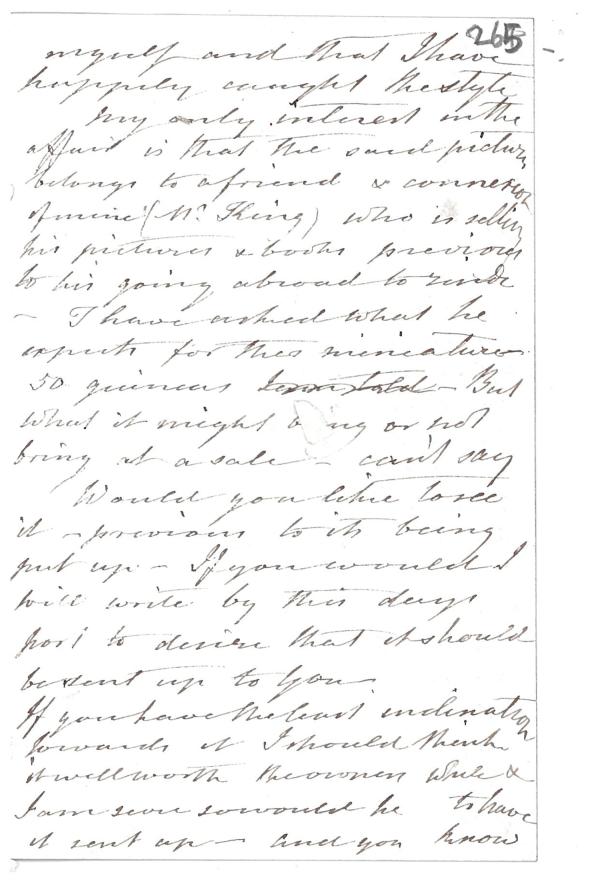 265
myself and that I have
happily caught the style
My only interest in the
affair is that the said picture
belongs to a friend & connexion
of mine (Mr. King) who is selling
his pictures & books previous
to his going abroad to reside
– I have asked what he
expects for this miniature
50 guineas I am told – But
what it might bring or not
bring at a sale – can't say
Would you like to see
it – previous to its being
put up – If you would I
will write by this days
post to desire that it should
be sent up to you –
If you have the least inclination
towards it I should think
it well worth the owners while &
I am sure so would he to have
it sent up – and you know